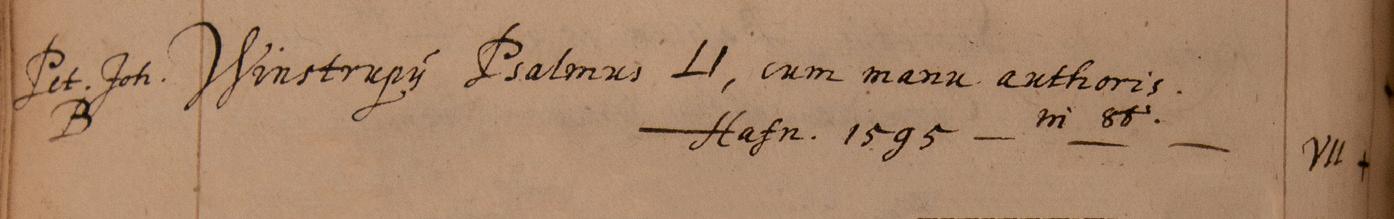 Pet. Joh. Winstrupÿ Psalmus LI, cum manu authoris.
B
Hafn. 1595 — in 8º. —
VII +